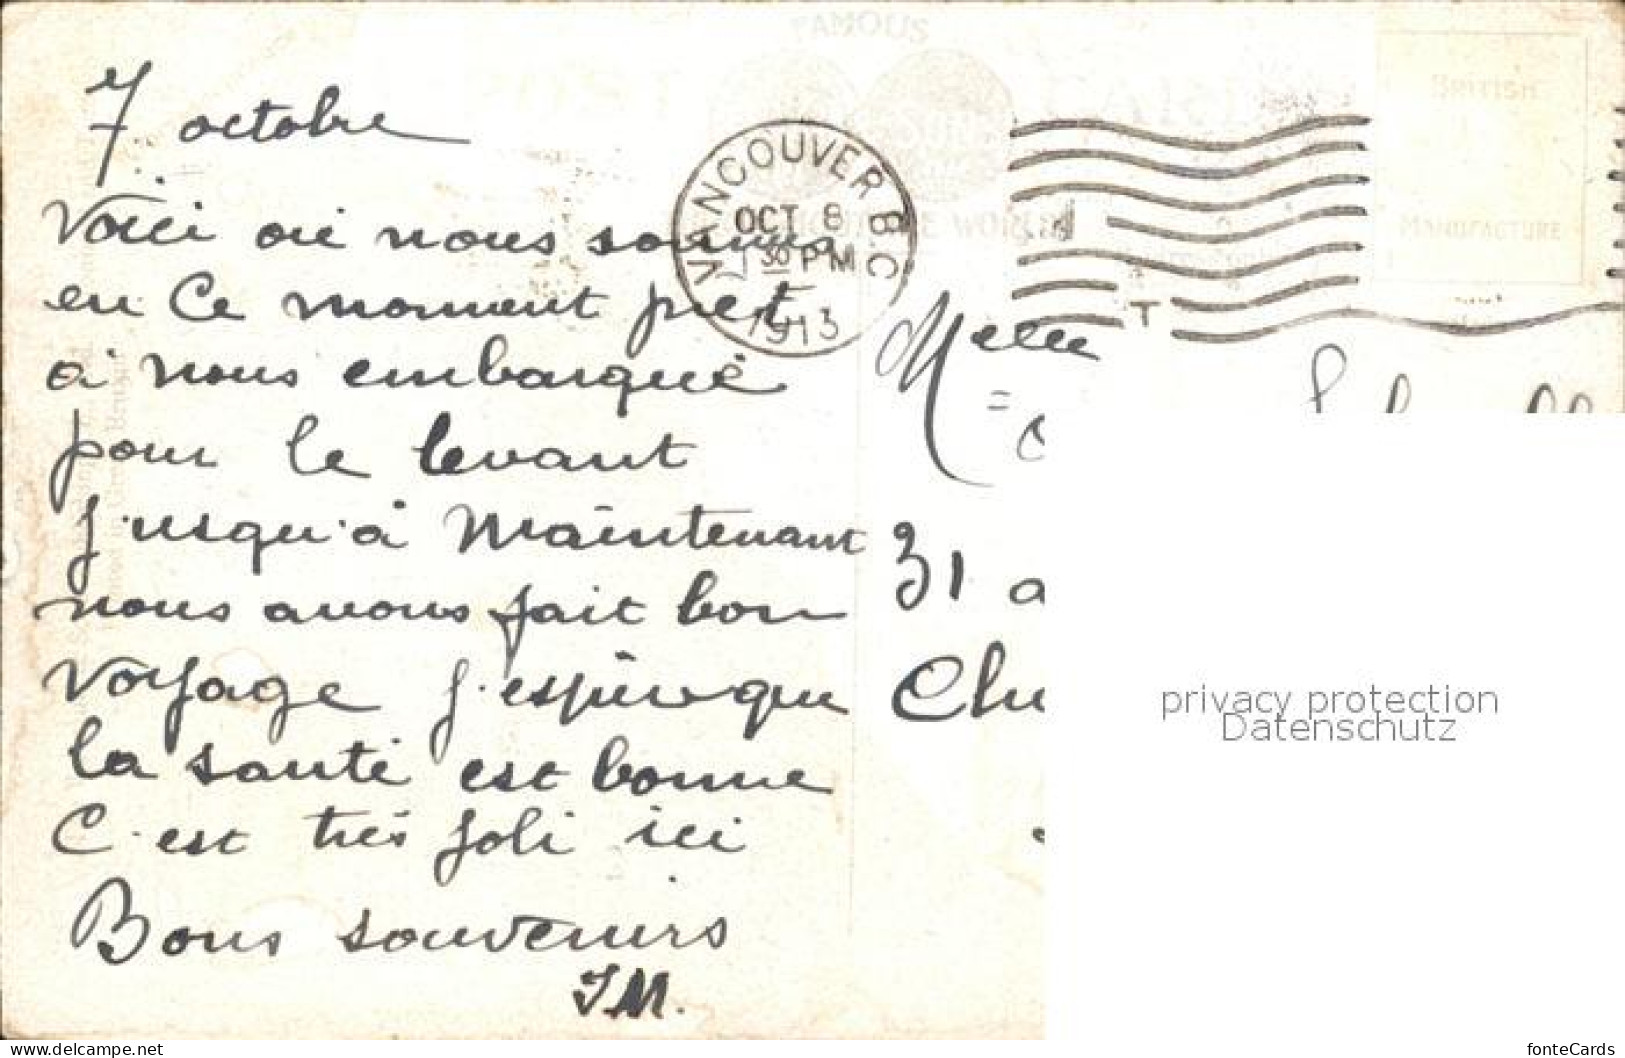 FAMOUS
BRITISH
MANUFACTURE
VANCOUVER B.C
OCT 8
30 PM
1913
T
7 octobre
Voici où nous sommes
en Ce moment pret
à nous embarqué
pour le levant
jusqu'à Maintenant
nous avons fait bon
voyage j'espère que
la santé est bonne
C'est très joli ici
Bons souvenirs
JM.
Melle
31 a
Chu
privacy protection
Datenschutz
www.delcampe.net/philapostcard
fonteCards